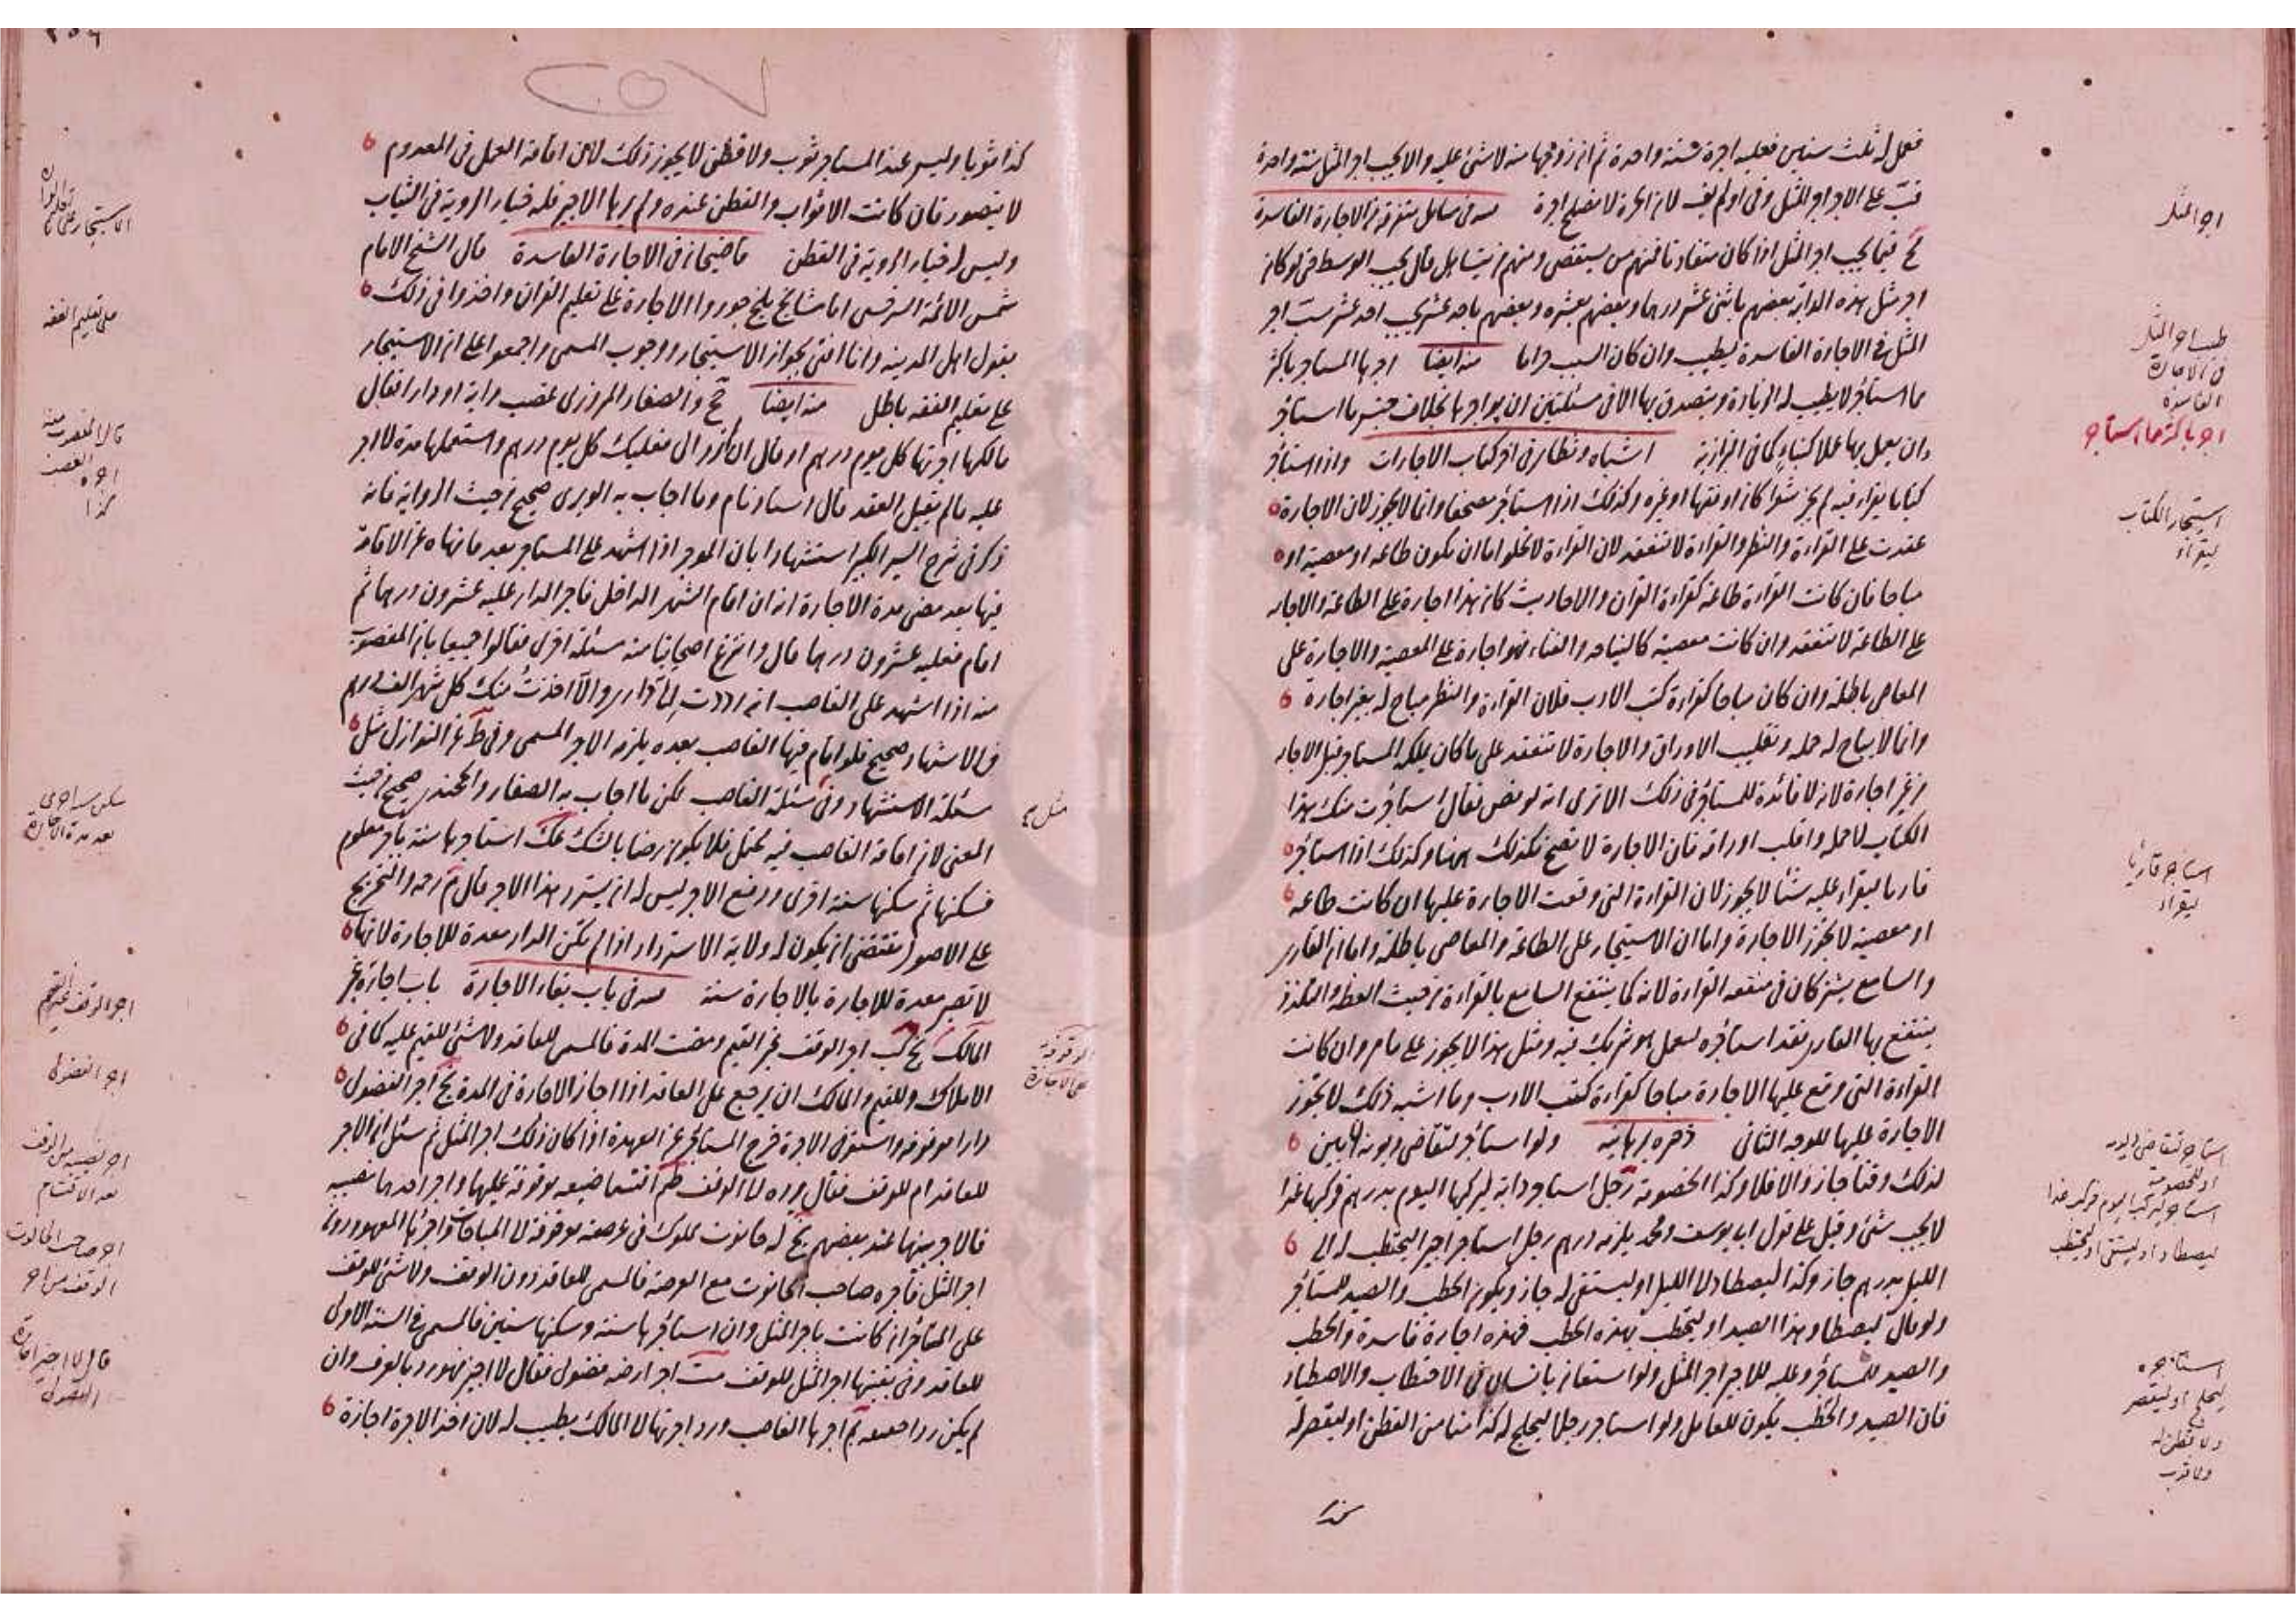 فعمل له ثلث سنين فعليه اجرة سنة واحدة ثم ان زوجها منه لا شئ عليه والا يجب اجر المثل سنة واحدة
على الاجر اجر المثل وفى اولم يف لان الحرة لا تصلح اجرة في مسائل متفرقة من الاجارة الفاسدة
فيما يجب اجر المثل اذا كان متفاوتا فمنهم من يستقصى ومنهم من يتساهل قال يجب الوسط حتى لو كان
اجر مثل هذه الدابة بعضهم باثنى عشر درهما وبعضهم بعشرة وبعضهم باحد عشر يجب احد عشر اجر
المثل فى الاجارة الفاسدة يطيب وان كان السبب حراما منه ايضا اجرها المستاجر باكثر
مما استاجر لا يطيب له الزيادة ويتصدق بها الا فى مسئلتين ان يواجرها بخلاف جنس ما استاجر
وان يعمل بها عملا كبناء كما فى البزازية اشباه ونظائر فى اخر كتاب الاجارات واذا استاجر
كتابا ليقراء فيه لم يجز شعرا كان او فقها او غيره وكذلك اذا استاجر مصحفا وانما لا يجوز لان الاجارة
عقدت على القراءة والنظر والقراءة لا تنعقد لان القراءة لا تخلو اما ان يكون طاعة او معصية او
مباحا فان كانت القراءة طاعة كقراءة القران والاحاديث كان هذا اجارة على الطاعة والاجارة
على الطاعة لا تنعقد وان كانت معصية كالنياحة والغناء فهو اجارة على المعصية والاجارة على
المعاصى باطلة وان كان مباحا كقراءة كتب الادب فلان القراءة والنظر مباح له بغير اجارة
وانما لا يباح له حمله وتقليب الاوراق والاجارة لا تنعقد على ما كان يملكه المستاجر قبل الاجارة
من غير اجارة لانه لا فائدة للمستاجر فى ذلك الا ترى انه لو نص فقال استاجرت منك هذا
الكتاب لاحمله واقلب اوراقه فان الاجارة لا تصح فكذلك ههنا وكذلك اذا استاجر
قاريا ليقراء عليه شئا لا يجوز لان القراءة التى وقعت الاجارة عليها ان كانت طاعة
او معصية لا يجوز الاجارة واما ان الاستيجار على الطاعة والمعاصى باطلة واما ان القارى
والسامع يشتركان فى منفعة القراءة لانه كما ينتفع السامع بالقراءة من حيث العظة والتلذذ
ينتفع بها القارى فقد استاجره لعمل هو شريك فيه ومثل هذا لا يجوز على ما مر وان كانت
القراءة التى وقع عليها الاجارة مباحا كقراءة كتب الادب وما اشبه ذلك لا يجوز
الاجارة عليها للوجه الثانى ذخيره برهانيه ولو استاجر لتقاضى ديونه ان بين
لذلك وقتا جاز والا فلا وكذا الخصومة رجل استاجر دابة ليركبها اليوم بدرهم فركبها غدا
لا يجب شئ وقيل على قول ابى يوسف ومحمد يلزمه درهم رجل استاجر اجيرا ليحتطب له الى
الليل بدرهم جاز وكذا ليصطاد له الى الليل او ليستقى له جاز ويكون الحطب والصيد للمستاجر
ولو قال ليصطاد هذا الصيد او ليحتطب هذه الحطب فهذه اجارة فاسدة والحطب
والصيد للمستاجر وعليه للاجير اجر المثل ولو استعان بانسان فى الاحتطاب والاصطياد
فان الصيد والحطب يكون للعامل ولو استاجر رجلا ليحلج له كذا منا من القطن او ليقصر له
كذا
اجر المثل
طيب اجر المثل
فى الاجارة
الفاسدة
اجر باكثر مما استاجر
استيجار الكتاب
ليقراء
استاجر قاريا
ليقراء
استاجر لتقاضى ديونه
او للخصومة
استاجر ليركب اليوم فركب غدا
ليصطاد او ليستقى او ليحتطب
استاجره
ليحلج او ليقصر
ولا قطن له
ولا ثوب
كذا ثوبا وليس عند المستاجر ثوب ولا قطن لا يجوز ذلك لان اقامة العمل فى المعدوم
لا يتصور فان كانت الاثواب والقطن عنده ولم يرها الاجير فله خيار الروية فى الثياب
وليس له خيار الروية فى القطن قاضيخان فى الاجارة الفاسدة قال الشيخ الامام
شمس الائمة السرخسى اما مشايخ بلخ جوزوا الاجارة على تعليم القران واخذوا فى ذلك
بقول اهل المدينة وانا افتى بجواز الاستيجار ووجوب المسمى واجمعوا على ان الاستيجار
على تعليم الفقه باطل منه ايضا والصفار المروزى غصب دابة او دارا فقال
مالكها اجرتها كل يوم درهم او قال ان لم ترد الى فعليك كل يوم درهم واستعملها مدة لا اجر
عليه ما لم يقبل العقد قال استادنام وما اجاب به الوبرى صحيح من حيث الرواية فانه
ذكر فى شرح السير الكبير استشهادا بان الموجر اذا اشهد على المستاجر بعد ما نهاه عن الاقامة
فيها بعد مضى مدة الاجارة انه ان اقام الشهر الداخل فاجر الدار عليه عشرون درهما ثم
اقام فعليه عشرون درهما قال وانتزع اصحابنا منه مسئلة اخرى فقالوا جميعا بان المغصوب
منه اذا اشهد على الغاصب انه ان رددت الى دارى والا اخذت منك كل شهر الف درهم
فالاشهاد صحيح فلو اقام فيها الغاصب بعده يلزمه الاجر المسمى وفى ط عن النوازل مثل
مسئلة الاستشهاد وفى مسئلة الغاصب لكن ما اجاب به الصفار والخجندى صحيح من حيث
المعنى لان اقامة الغاصب فيه يحتمل فلا يكون رضا بالشك عك استاجرها سنة باجر معلوم
فسكنها ثم سكنها سنة اخرى ودفع الاجر ليس له ان يسترد هذا الاجر قال رحمه والتخريج
على الاصول يقتضى ان يكون له ولاية الاسترداد اذا لم تكن الدار معدة للاجارة لانها
لا تصير معدة للاجارة بالاجارة سنة فى باب بقاء الاجارة باب اجارة غير
المالك اجر الوقف غير القيم ومضت المدة فالمسمى للعاقد ولا شئ للقيم عليه كما فى
الاملاك وللقيم والمالك ان يرجع على العاقد اذا اجاز الاجارة فى المدة اجر الفضولى
دارا موقوفة واستوفى الاجرة خرج المستاجر عن العهدة اذا كان ذلك اجر المثل ثم سئل ان الاجر
للعاقد ام للوقف فقال يرده الى الوقف اقتسما ضيعة موقوفة عليهما واجر احدهما نصيبه
فالاجر بينهما عند بعضهم له حانوت مملوك فى عرصة موقوفة واجرها
اجر المثل فاجره صاحب الحانوت مع العرصة فالمسمى للعاقد دون الوقف ولا شئ للوقف
على المستاجر ان كانت باجر المثل وان استاجرها سنة وسكنها سنين فالمسمى فى السنة الاولى
للعاقد وفى بقيتها اجر المثل للوقف اجر ارضه فضولى فقال لا اجيز فهو رد بالعرف وان
لم يكن ردا اجرها الغاصب ورد اجرتها الى المالك يطيب له لان اخذ الاجرة اجازة
الاستيجار على تعليم القران
على تعليم الفقه
قال المغصوب منه
مثل
سكن
بعد مدة الاجارة
اجر الوقف غير القيم
اجر الفضولى
اجر نصيبه من الوقف
بعد الاقتسام
اجر صاحب الحانوت
قال لا اجيز اجارة
الفضولى